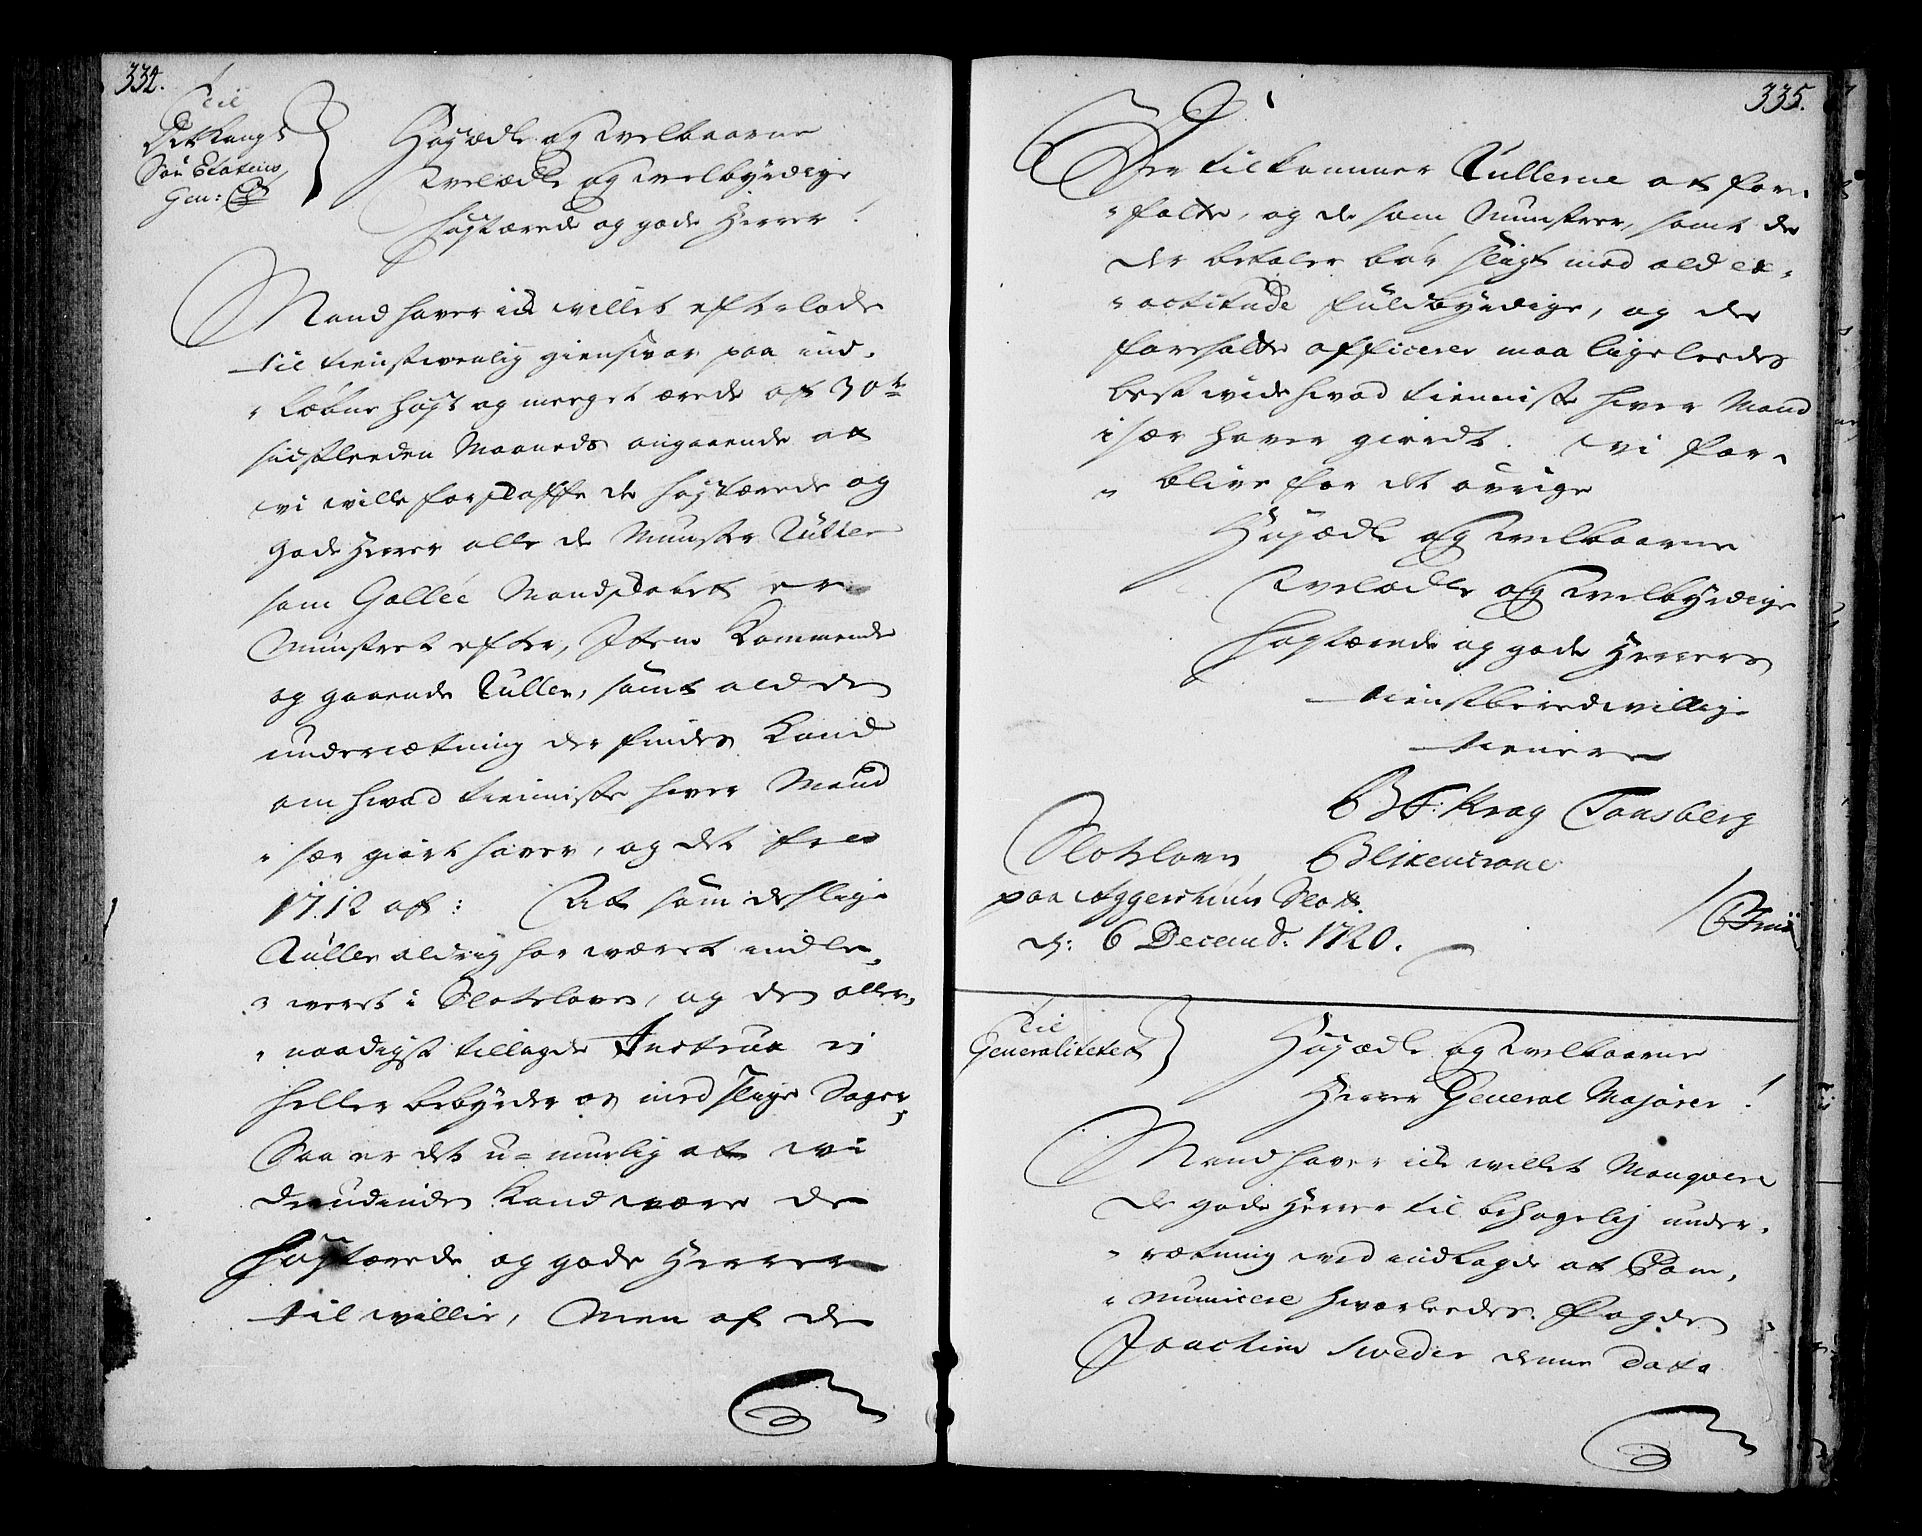 334.
Til
Det Kongl
Søe Etatens
Gen: 
Høyædle og Welbaarne
Welædle og Welbyrdige
høystærede og gode Herrer!
Mand haver icke villet efterlade
til tienstwenlig giensvar paa ind-
løbne høyt og meeget ærede af 30te
sidstleeden Maaneds angaaende at
vi wille forskaffe de høystærede og
gode Herrer alle de Munster Rulter
som Galleé Mandskabet er
Munstret efter, Item kommende
og gaaende Ruller, samt ald den
underrætning der findes kand
om hvad tienniste hver Mand
i sær giort haver, og det fra
1712 af: At som deslige
Ruller aldrig har wæret indle-
weret i Slotsloven, og den aller-
naadigst tillagde Instrux ej
heller bebyrder os med slige Sager,
Saa er det u-muelig at wi
derudinden kand være de
høystærede og gode Herrer
til willie, Men af de
335.
Der tilkommer Rullerne at for-
fatte, og de som Munstrer, samt de
der betaler bør sligt med ald ex-
actitude fuldbyrdige, og de
foresatte officerer maa ligeleedes
best vide hvad tienniste hver Mand
i sær haver giordt. Vi for-
blive for det øvrige
Høyædle og Welbaarne
Welædle og Welbyrdige
høystærede og gode Herrers
tienstberedwillige
tienere
F: Krag Tonsberg
Slotsloven Blixencrone
paa Aggershuus Slott
d: 6 Decemb: 1720.
Til
Generalitetet
Høyædle og Welbaarne
Herrer General Majorer!
Mand haver icke willet Manqvere
de gode Herrer til behagelig under-
rætning ved indlagde at Com-
municere hvorleedes Fogden
Joachim Sweder denne Dato